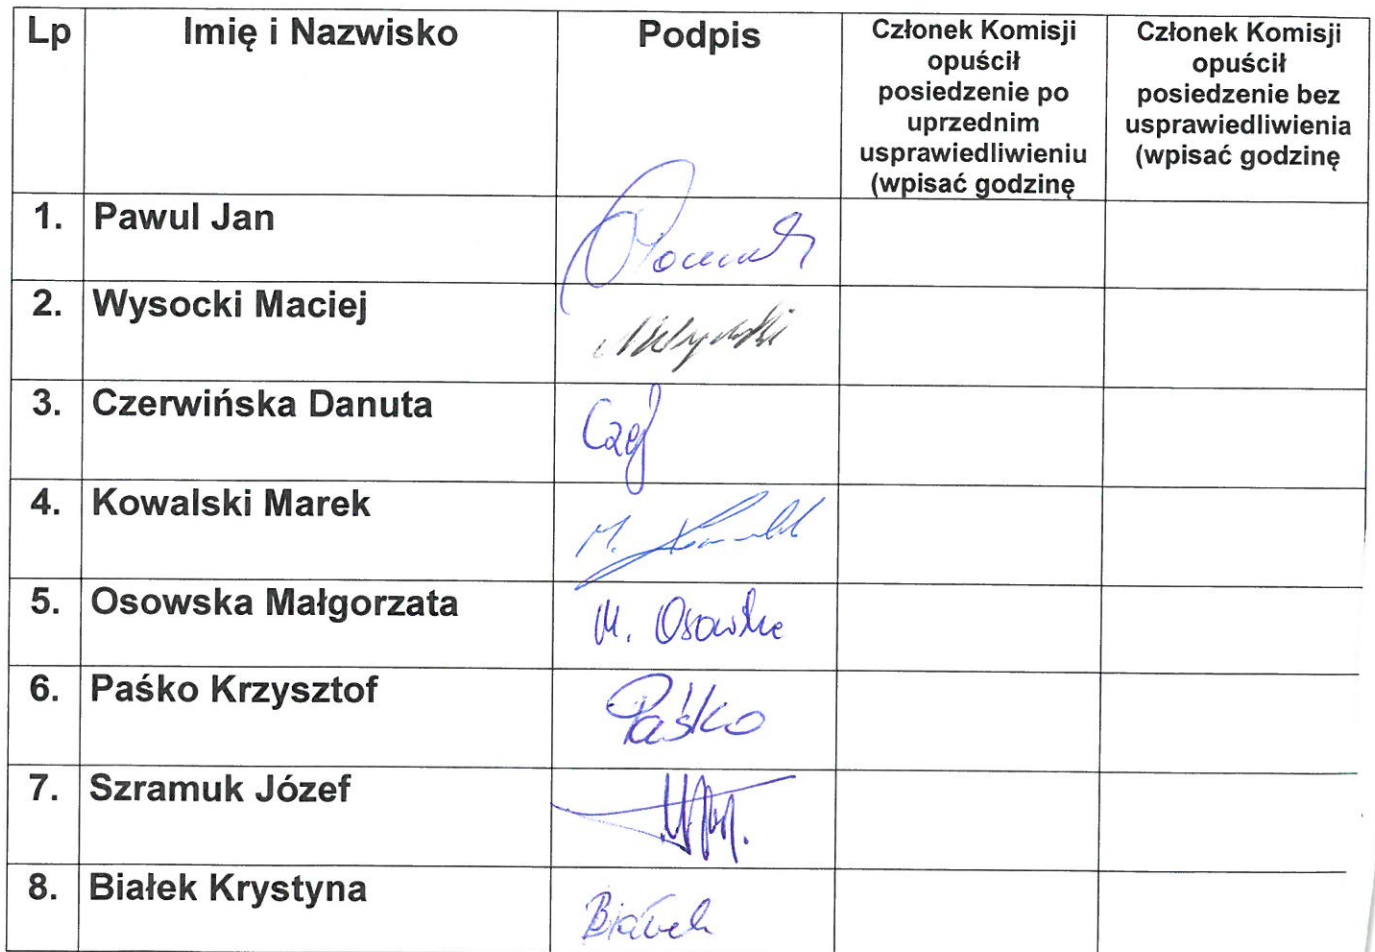 Lp
Imię i Nazwisko
Podpis
Członek Komisji
opuścił
posiedzenie po
uprzednim
usprawiedliwieniu
(wpisać godzinę
Członek Komisji
opuścił
posiedzenie bez
usprawiedliwienia
(wpisać godzinę
1. Pawul Jan
2. Wysocki Maciej
3. Czerwińska Danuta
4. Kowalski Marek
5. Osowska Małgorzata M. Osowska
6. Paśko Krzysztof Paśko
7. Szramuk Józef
8. Białek Krystyna Białek